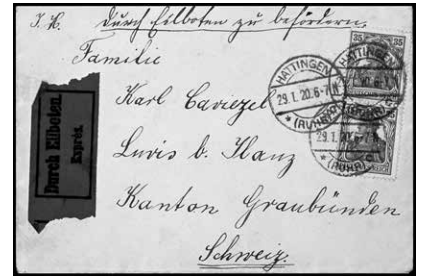 durch Eilboten zu befördern.
Familie
Karl Caviezel
Luvis b. Ilanz
Kanton Graubünden
Schweiz.
Durch Eilboten
Exprès.
35 35
HATTINGEN
29.1.20.6-7N
* (RUHR)
HATTINGEN
29.1.20.6-7N
* (RUHR)